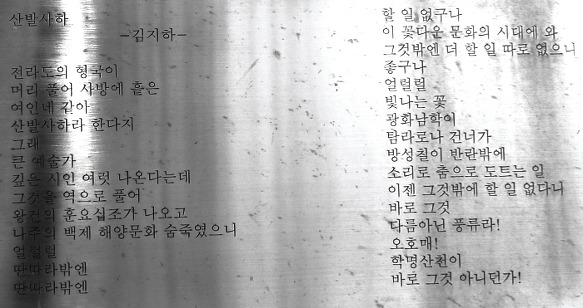 산발사하
-김지하-
전라도의 형국이
머리 풀어 사방에 흩은
여인네 같아
산발사하라 한다지
그래
큰 예술가
깊은 시인 여럿 나온다는데
그것을 역으로 풀어
왕건의 훈요십조가 나오고
나주의 백제 해양문화 숨죽였으니
얼럴럴
딴따라밖엔
딴따라밖엔
할 일 없구나
이 꽃다운 문화의 시대에 와
그것밖엔 더 할 일 따로 없으니
좋구나
얼럴럴
빛나는 꽃
광화남학이
탐라로나 건너가
방성칠이 반란밖에
소리로 춤으로 도트는 일
이젠 그것밖에 할 일 없다니
바로 그것
다름아닌 풍류라!
오호매!
학명산천이
바로 그것 아니던가!